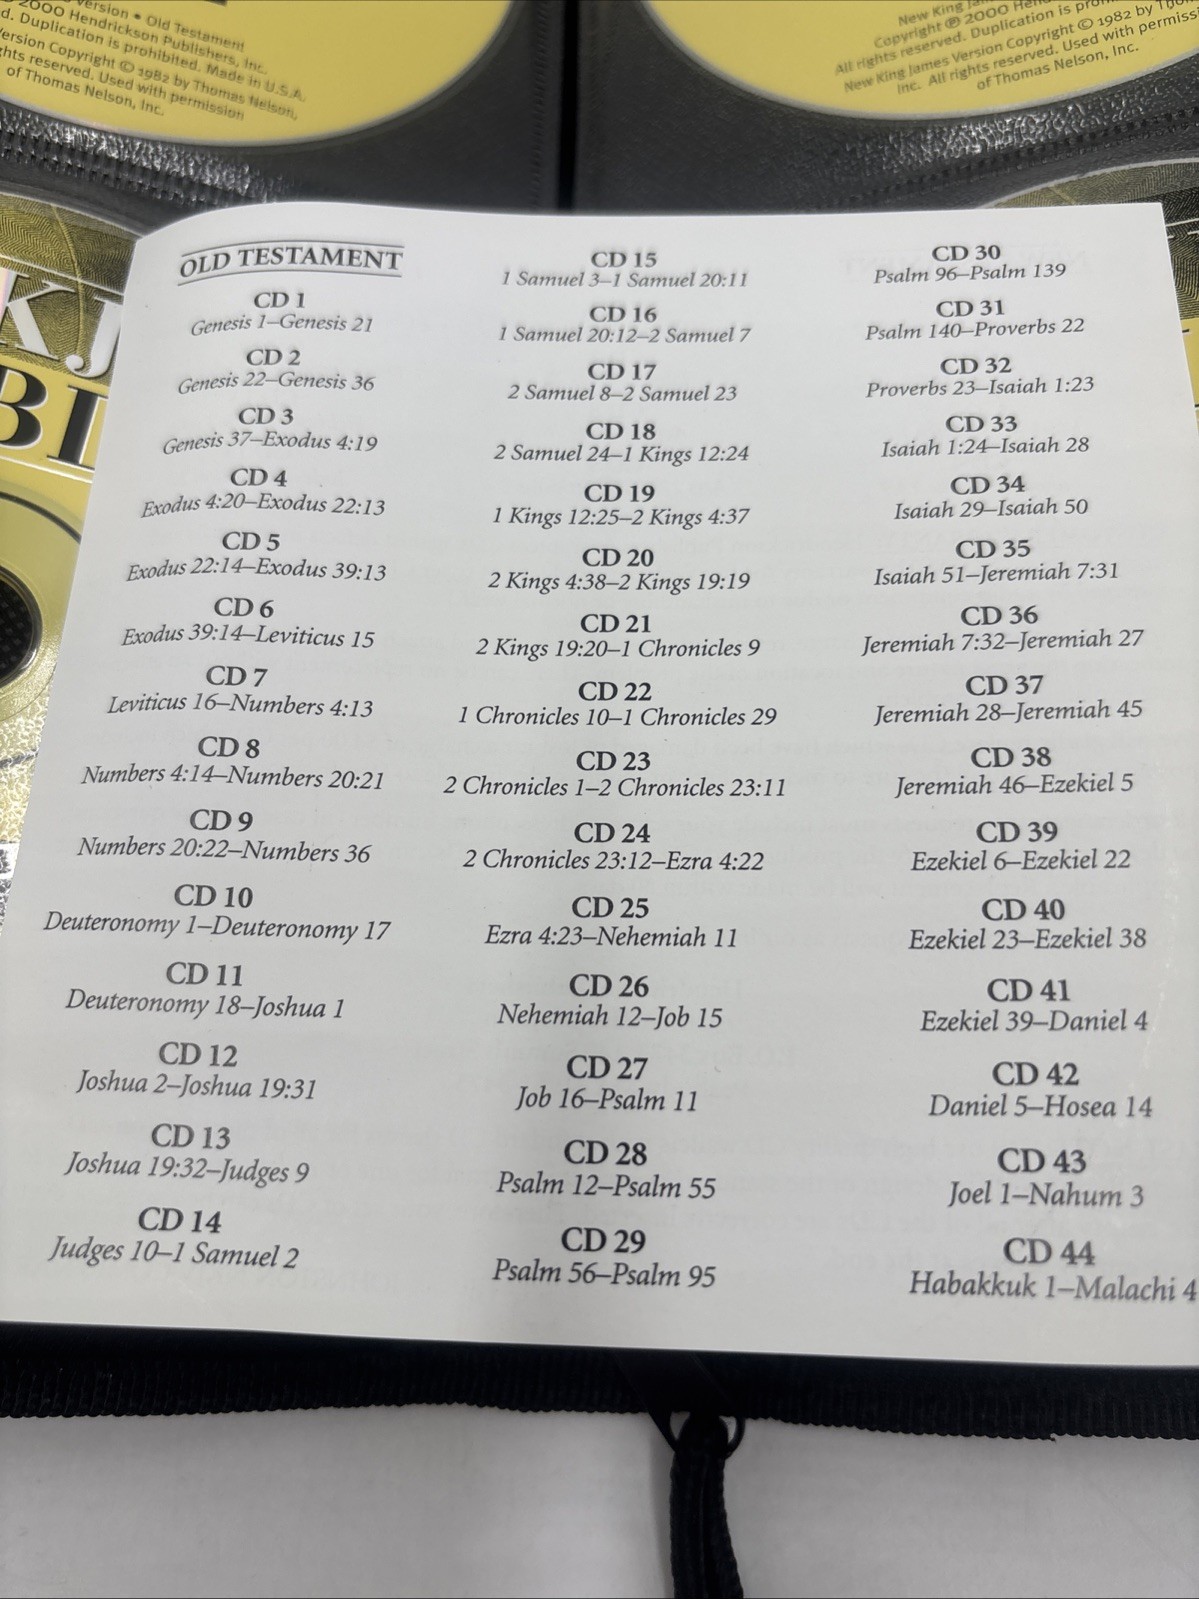 Version • Old Testament
2000 Hendrickson Publishers, Inc.
d. Duplication is prohibited. Made in U.S.A.
Version Copyright © 1982 by Thomas Nelson,
hts reserved. Used with permission
of Thomas Nelson, Inc.
New King
Copyright ℗ 2000
All rights reserved. Duplication is
New King James Version Copyright © 1982 by
Inc. All rights reserved. Used with
of Thomas Nelson, Inc.
KJ
BI
OLD TESTAMENT
CD 1
Genesis 1–Genesis 21
CD 2
Genesis 22–Genesis 36
CD 3
Genesis 37–Exodus 4:19
CD 4
Exodus 4:20–Exodus 22:13
CD 5
Exodus 22:14–Exodus 39:13
CD 6
Exodus 39:14–Leviticus 15
CD 7
Leviticus 16–Numbers 4:13
CD 8
Numbers 4:14–Numbers 20:21
CD 9
Numbers 20:22–Numbers 36
CD 10
Deuteronomy 1–Deuteronomy 17
CD 11
Deuteronomy 18–Joshua 1
CD 12
Joshua 2–Joshua 19:31
CD 13
Joshua 19:32–Judges 9
CD 14
Judges 10–1 Samuel 2
CD 15
1 Samuel 3–1 Samuel 20:11
CD 16
1 Samuel 20:12–2 Samuel 7
CD 17
2 Samuel 8–2 Samuel 23
CD 18
2 Samuel 24–1 Kings 12:24
CD 19
1 Kings 12:25–2 Kings 4:37
CD 20
2 Kings 4:38–2 Kings 19:19
CD 21
2 Kings 19:20–1 Chronicles 9
CD 22
1 Chronicles 10–1 Chronicles 29
CD 23
2 Chronicles 1–2 Chronicles 23:11
CD 24
2 Chronicles 23:12–Ezra 4:22
CD 25
Ezra 4:23–Nehemiah 11
CD 26
Nehemiah 12–Job 15
CD 27
Job 16–Psalm 11
CD 28
Psalm 12–Psalm 55
CD 29
Psalm 56–Psalm 95
CD 30
Psalm 96–Psalm 139
CD 31
Psalm 140–Proverbs 22
CD 32
Proverbs 23–Isaiah 1:23
CD 33
Isaiah 1:24–Isaiah 28
CD 34
Isaiah 29–Isaiah 50
CD 35
Isaiah 51–Jeremiah 7:31
CD 36
Jeremiah 7:32–Jeremiah 27
CD 37
Jeremiah 28–Jeremiah 45
CD 38
Jeremiah 46–Ezekiel 5
CD 39
Ezekiel 6–Ezekiel 22
CD 40
Ezekiel 23–Ezekiel 38
CD 41
Ezekiel 39–Daniel 4
CD 42
Daniel 5–Hosea 14
CD 43
Joel 1–Nahum 3
CD 44
Habakkuk 1–Malachi 4